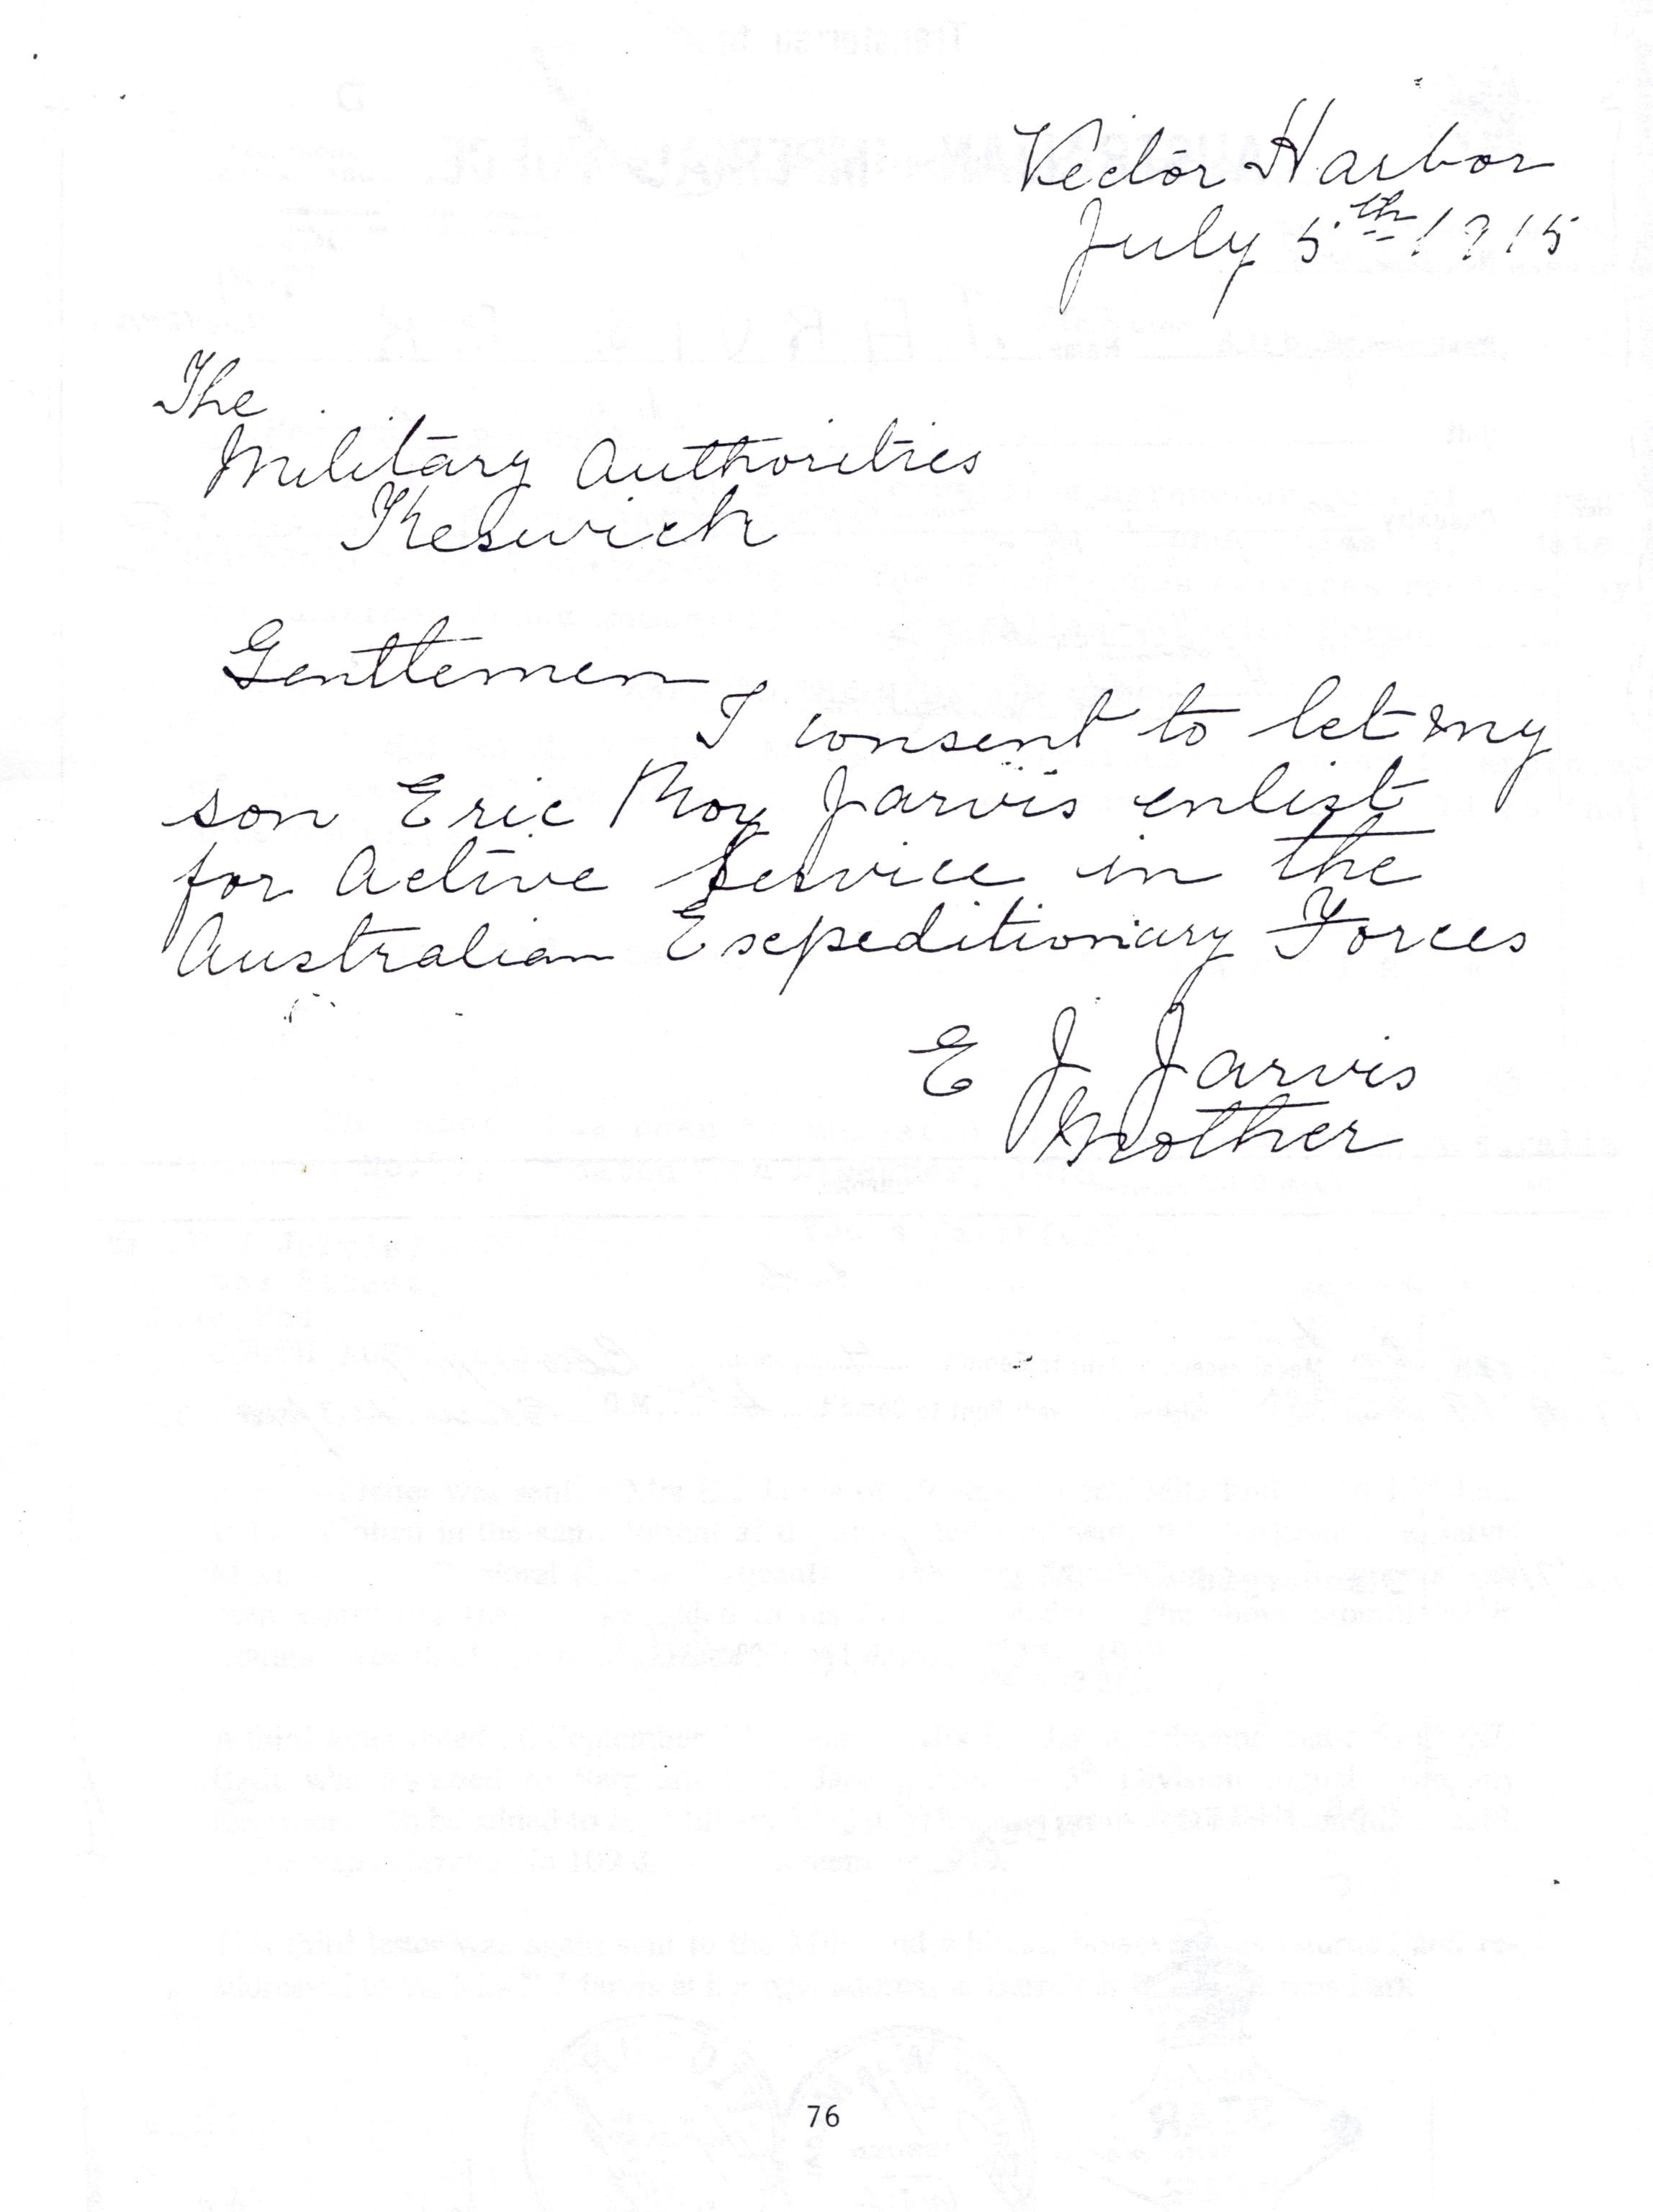 Victor Harbor
July 5th 1915
The
Military Authorities
Keswick
Gentlemen
I consent to let my
son Eric Roy Jarvis enlist
for Active Service in the
Australian Expeditionary Forces
E J Jarvis
Mother
76